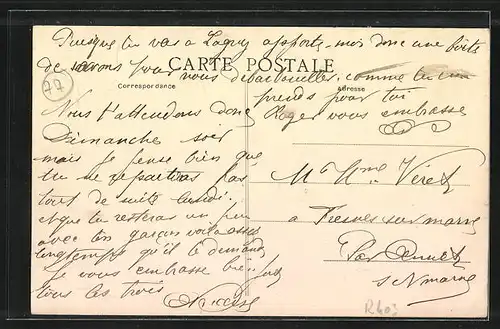 Puisque tu vas à Lagny apporte-moi donc une boîte
de savons pour nous débarbouiller. comme tu en
prends pour toi
Roger vous embrasse
CARTE POSTALE
Correspondance
Adresse
77
Nous t'attendons donc
Dimanche soir
mais je pense bien que
tu ne repartiras pas
tout de suite lundi.
et que tu resteras un peu
avec ton garçon voilà assez
longtemps qu'il le demande
Je vous embrasse bien fort
tous les trois
M. & Mme Viret
à Fresnes sur marne
Par Annet
s/ marne
R403